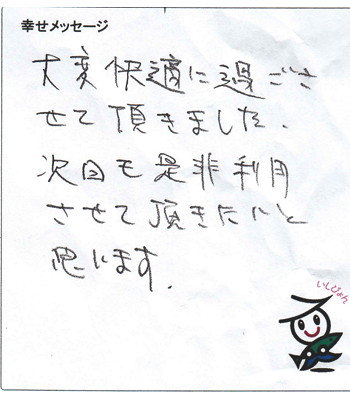 幸せメッセージ
大変快適に過ごさ
せて頂きました.
次回も是非利用
させて頂きたいと
思います.
いしぴょん